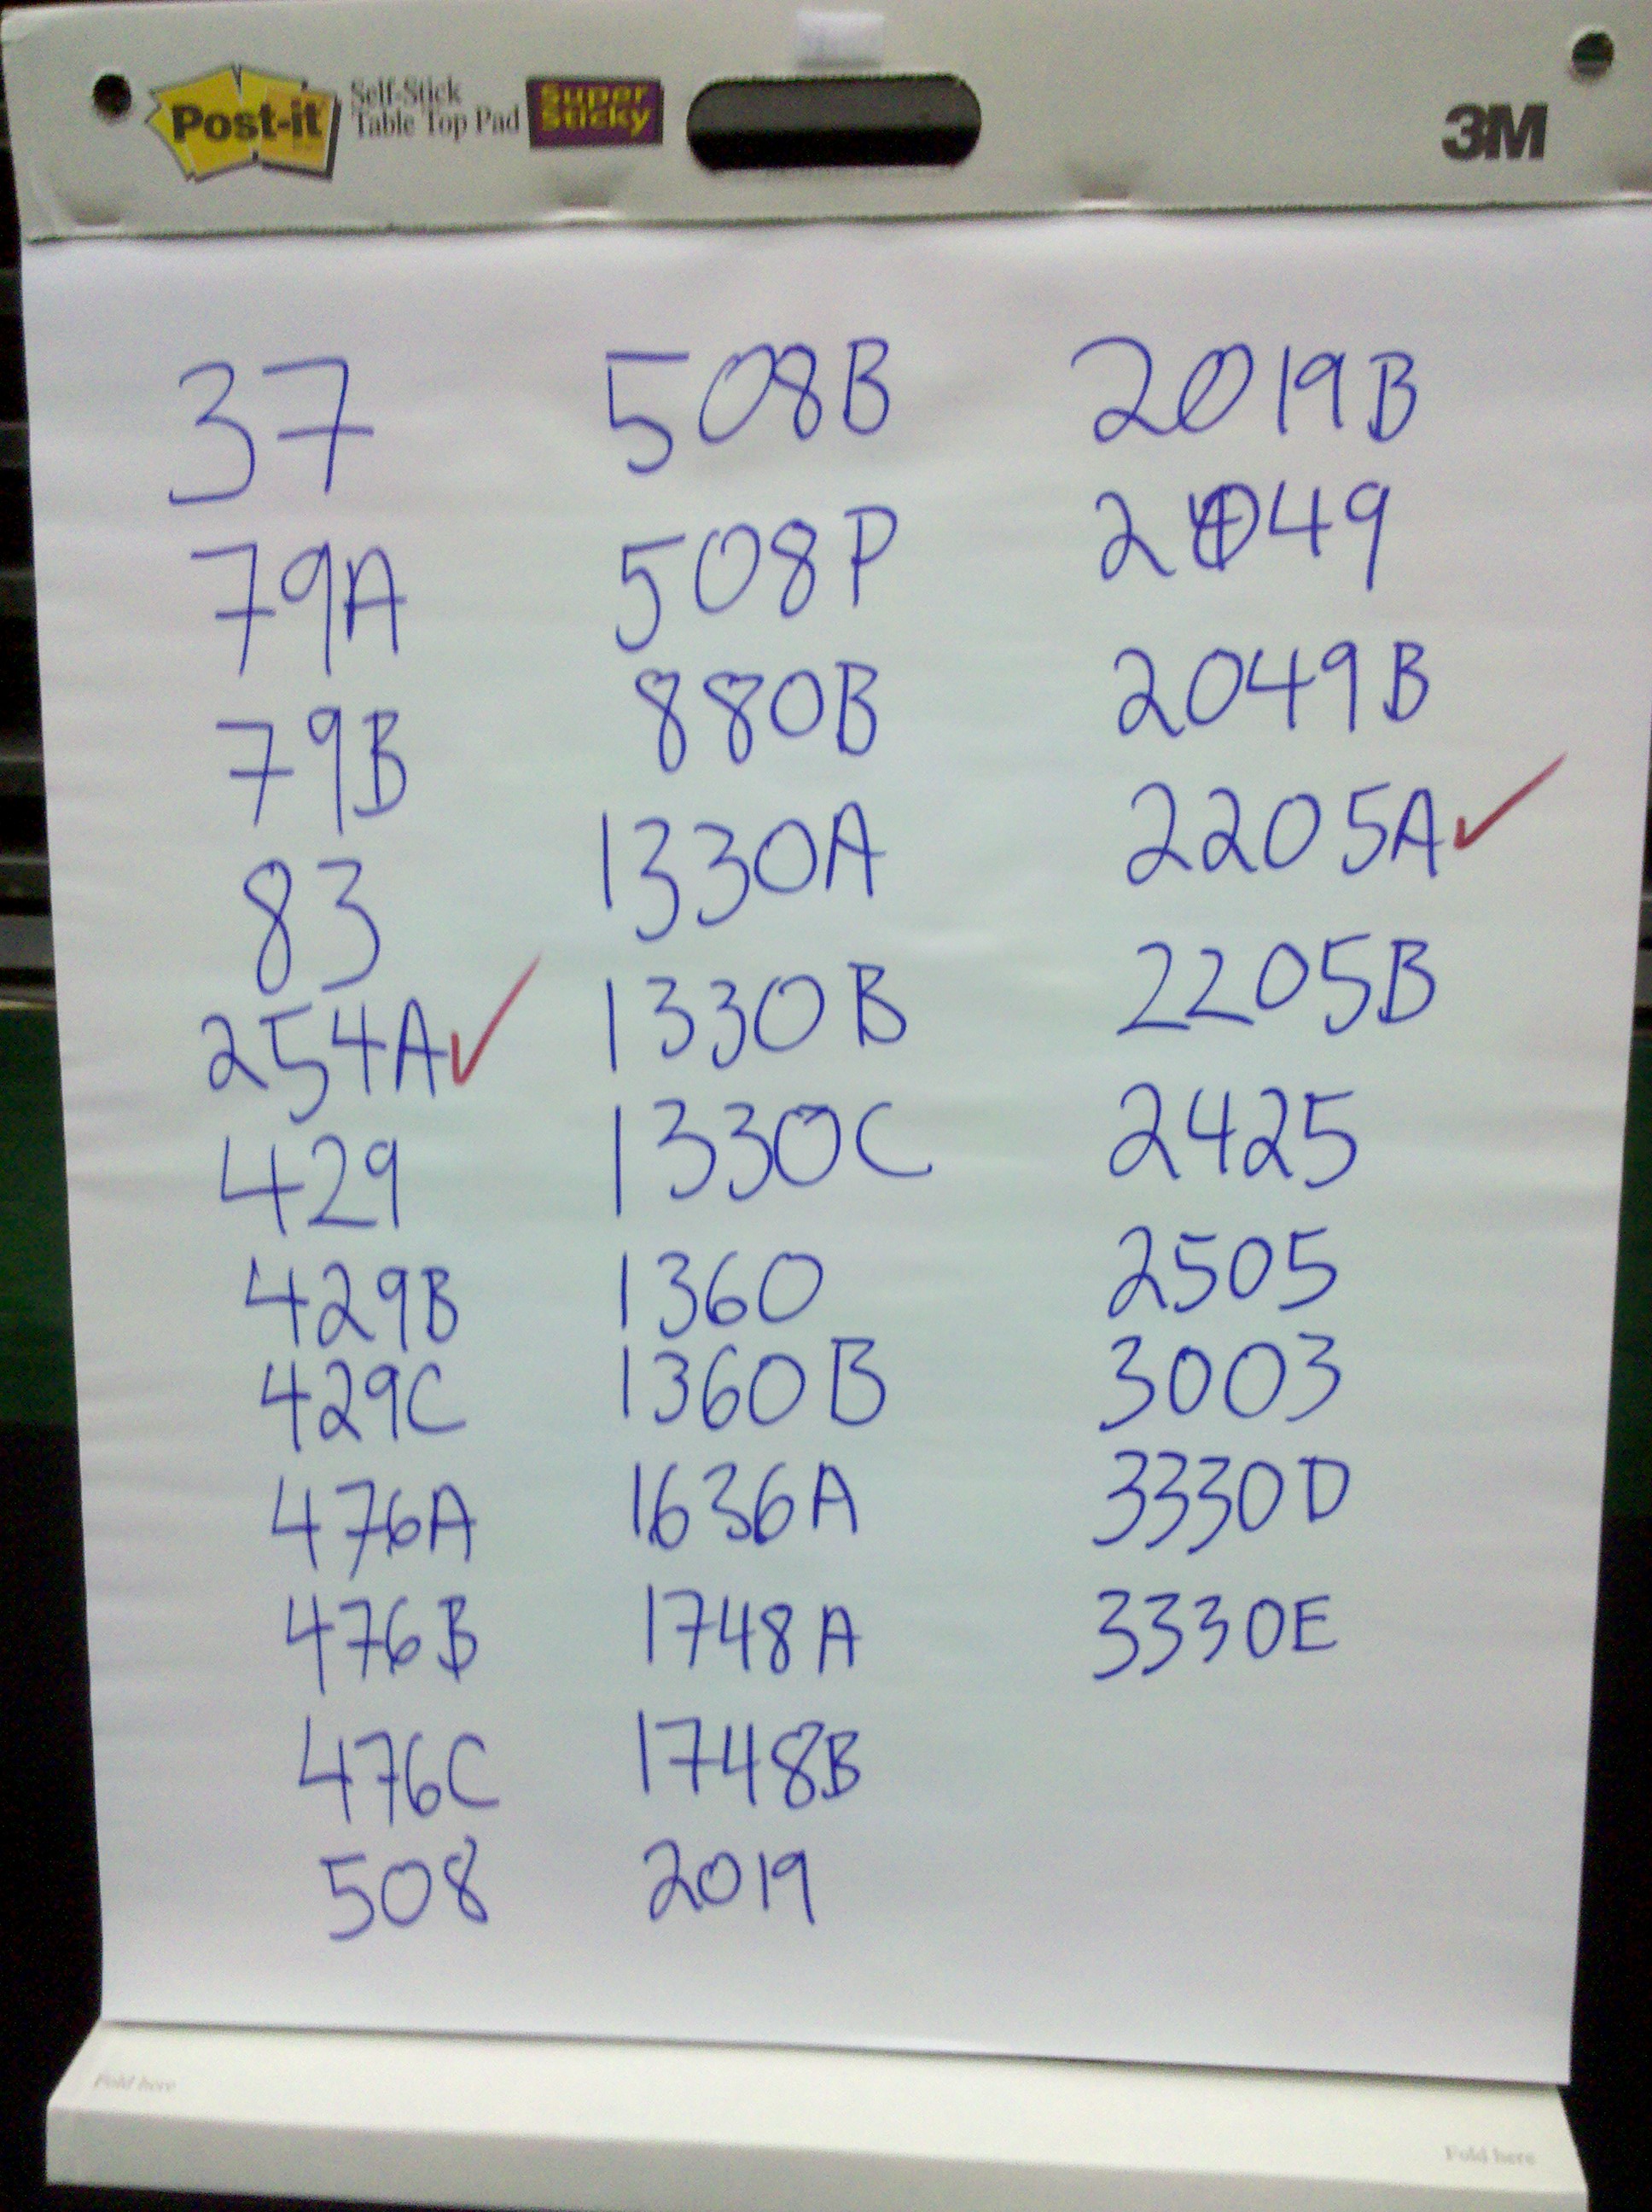 Post-it
Self-Stick
Table Top Pad
Super
Sticky
3M
37
79A
79B
83
254A✓
429
429B
429C
476A
476B
476C
508
508B
508P
880B
1330A
1330B
1330C
1360
1360B
1636A
1748A
1748B
2019
2019B
2049
2049B
2205A✓
2205B
2425
2505
3003
3330D
3330E
Fold here
Fold here